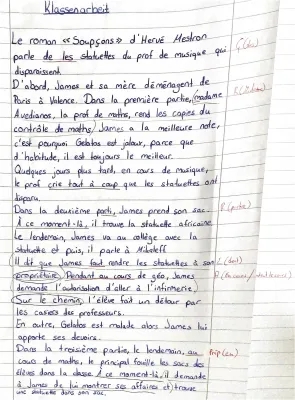 Klassenarbeit
Le roman «Soupçons» d'Hervé Mestron
parle de les statuettes du prof de musique qui
disparaissent
D'abord, James et sa mère déménagent de
Paris à Valence. Dans la première partie, (madame
Avedianos, la prof de maths, rend les copies du
contrôle de maths) James a la meilleure note,
c'est pourquoi Gelatos est jaloux, parce que
d'habitude, il est toujours le meilleur.
Quelques jours plus tard, en cours de musique,
le prof crie tout à coup que les statuettes ont
disparu.
Dans la deuxième parti, James prend son sac.
À ce moment-là, il trouve la statuette africaine
Le lendemain, James va au collège avec la
statuette et puis, il parle à
Il dit que James faut rendre les statuettes à son
propriétaire. Pendant au cours de géo, James
demande l'autorisation d'aller à l'infirmerie)
Sur le chemin, l'élève fait un détour par
les casiers des professeurs.
En outre, Gelatos est malade alors James lui
apporte ses devoirs.
Dans la troisième partie, le lendemain, au Prép (en)
cours de maths, le principal fouille les sacs des
élèves dans la classe. À ce moment-là, il demande
à James de lui montrer ses affaires et trouve
une statuette dans son sac.